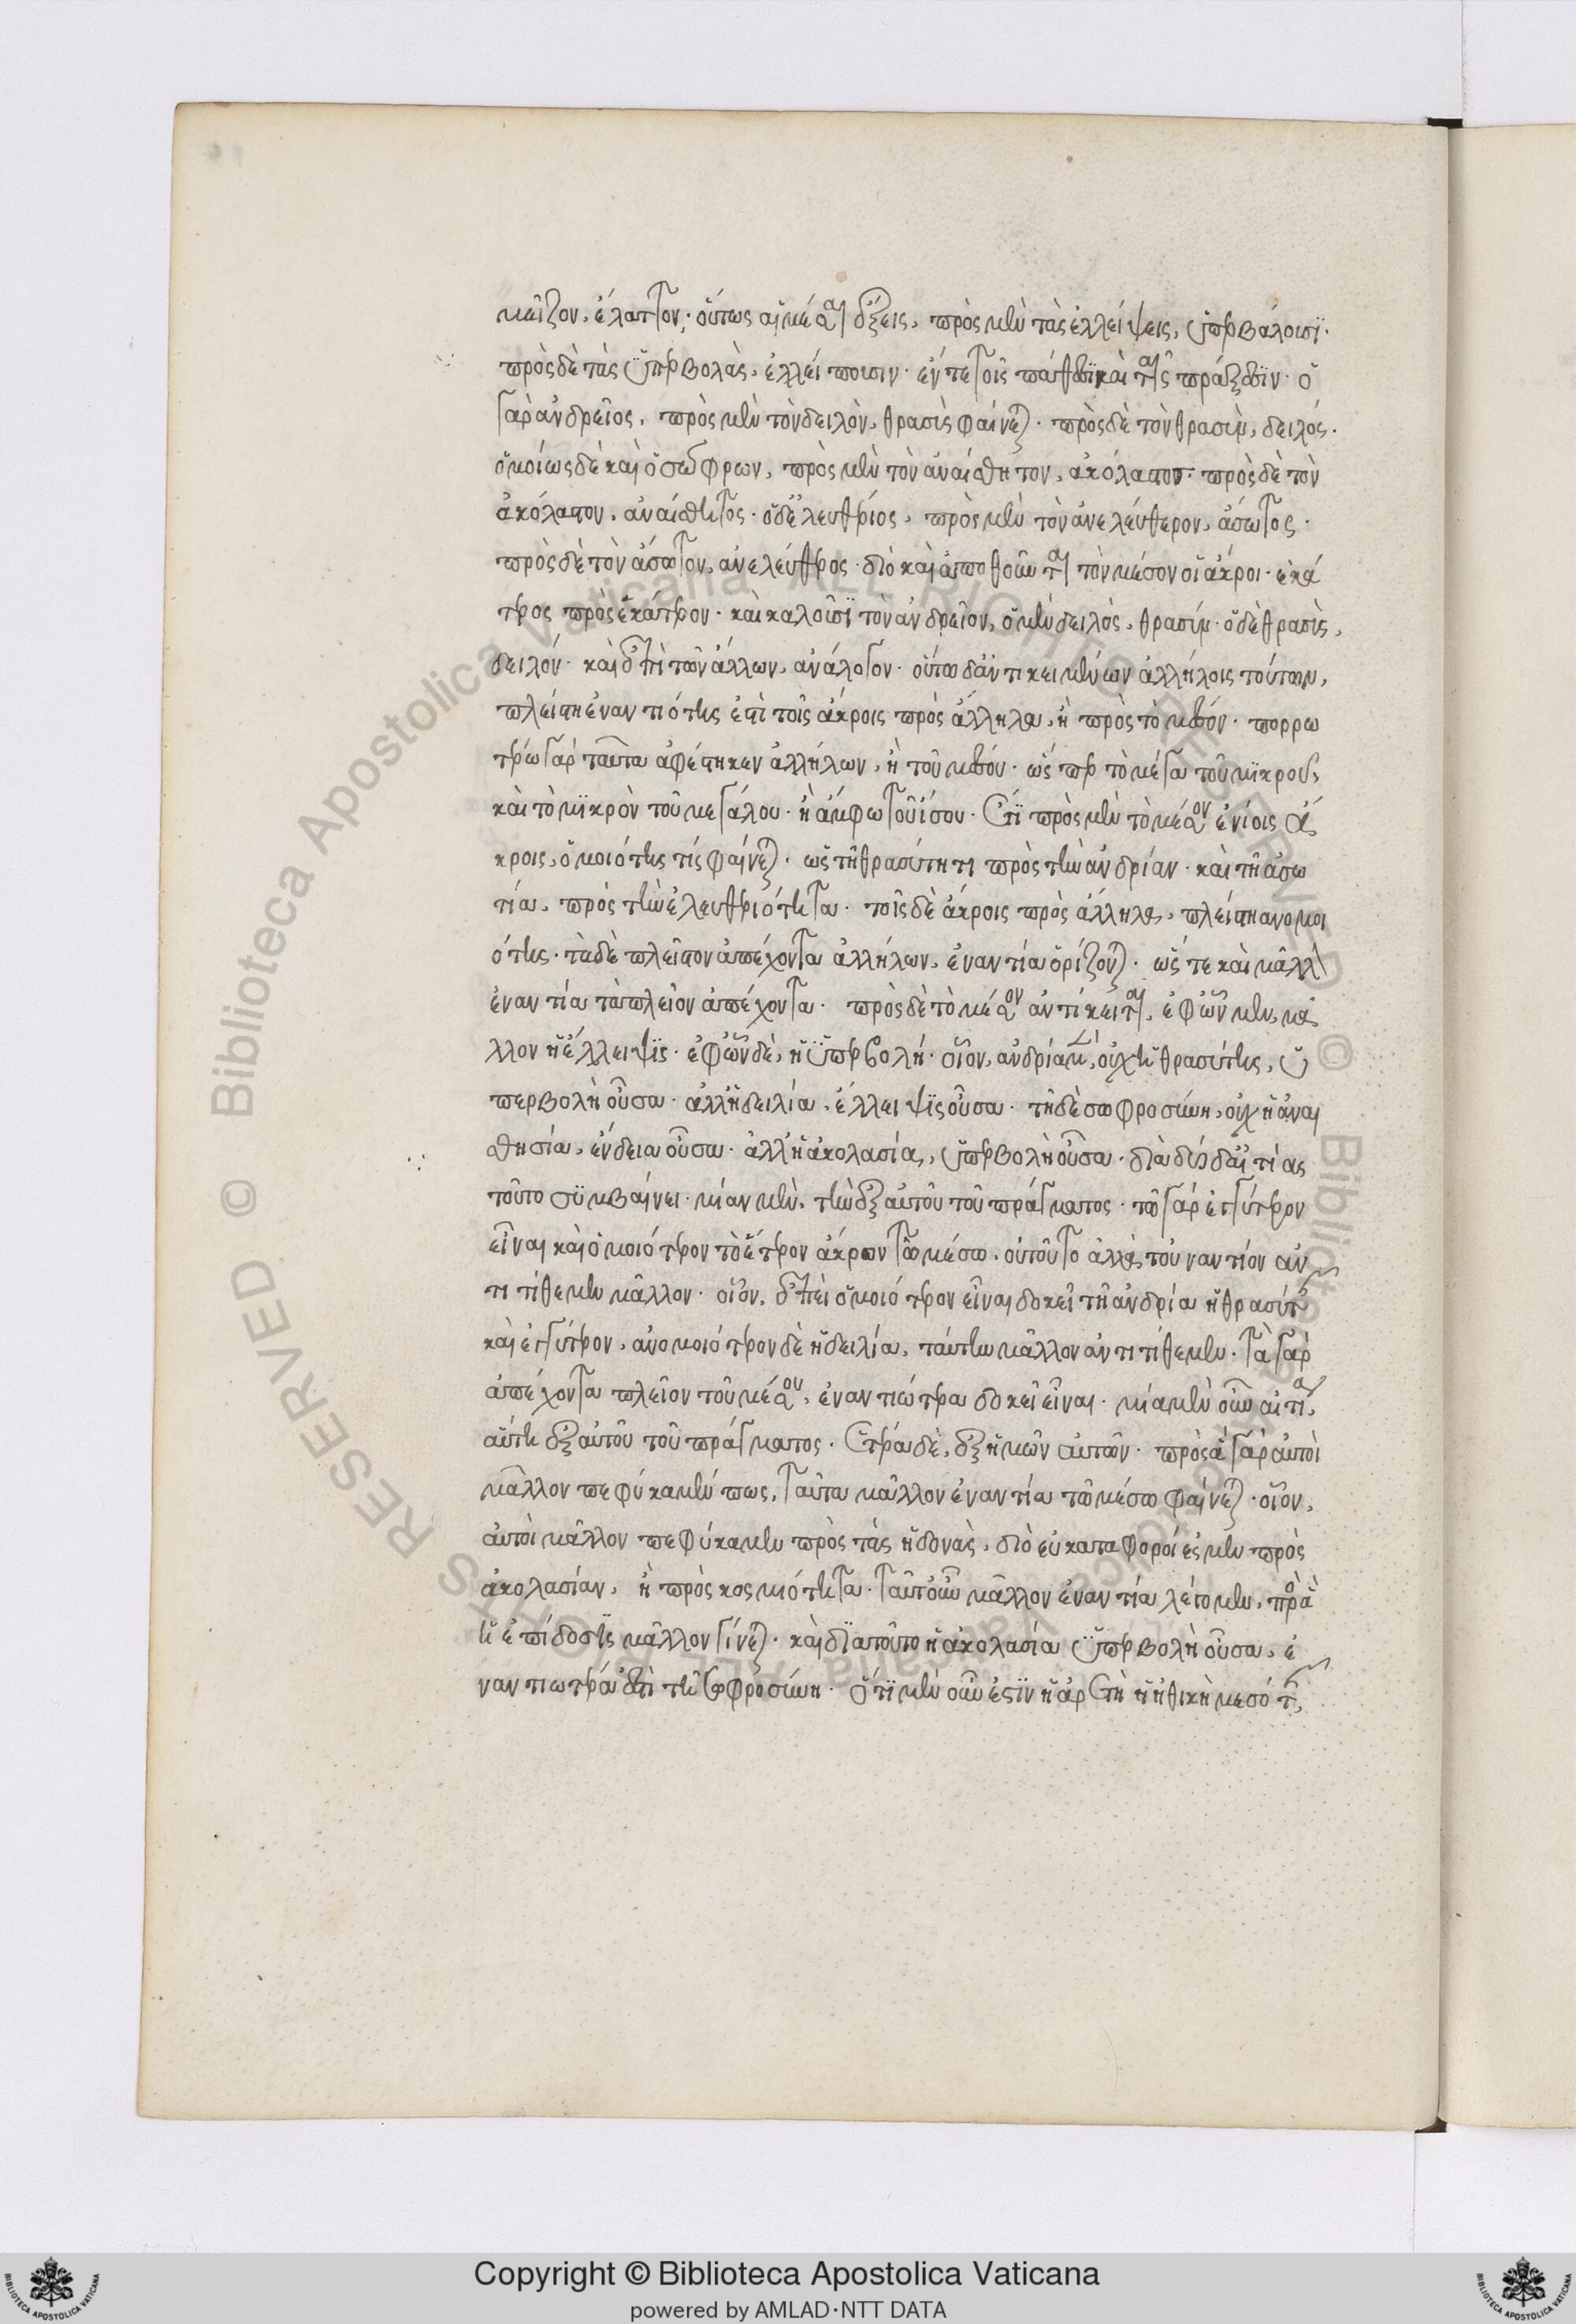 μεῖζον, ἔλαττον· οὕτως αἱ μέσαι ἕξεις, πρὸς μὲν τὰς ἐλλείψεις, ὑπερβάλουσι·
πρὸς δὲ τὰς ὑπερβολὰς, ἐλλείπουσιν· ἔν τε τοῖς πάθεσι καὶ ταῖς πράξεσιν· ὁ
γὰρ ἀνδρεῖος, πρὸς μὲν τὸν δειλὸν, θρασὺς φαίνεται· πρὸς δὲ τὸν θρασὺν, δειλός·
ὁμοίως δὲ καὶ ὁ σώφρων, πρὸς μὲν τὸν ἀναίσθητον, ἀκόλαστος· πρὸς δὲ τὸν
ἀκόλαστον, ἀναίσθητος· ὁ δ' ἐλευθέριος, πρὸς μὲν τὸν ἀνελεύθερον, ἄσωτος·
πρὸς δὲ τὸν ἄσωτον, ἀνελεύθερος· διὸ καὶ ἀπωθοῦνται τὸν μέσον οἱ ἄκροι· ἑκά
τερος πρὸς ἑκάτερον· καὶ καλοῦσι τὸν ἀνδρεῖον, ὁ μὲν δειλὸς, θρασύν· ὁ δὲ θρασὺς,
δειλόν· καὶ ἐπὶ τῶν ἄλλων, ἀνάλογον· οὕτω δ' ἀντικειμένων ἀλλήλοις τούτων,
πλείστη ἐναντιότης ἐστὶ τοῖς ἄκροις πρὸς ἄλληλα, ἢ πρὸς τὸ μέσον· πορρω
τέρω γὰρ ταῦτα ἀφέστηκεν ἀλλήλων, ἢ τοῦ μέσου· ὥσπερ τὸ μέγα τοῦ μικροῦ,
καὶ τὸ μικρὸν τοῦ μεγάλου· ἢ ἄμφω τοῦ ἴσου· ἔτι πρὸς μὲν τὸ μέσον ἐνίοις ἄ
κροις, ὁμοιότης τίς φαίνεται· ὡς τῇ θρασύτητι πρὸς τὴν ἀνδρίαν· καὶ τῇ ἀσω
τία, πρὸς τὴν ἐλευθεριότητα· τοῖς δὲ ἄκροις πρὸς ἄλληλα, πλείστη ἀνομοι
ότης· τὰ δὲ πλεῖστον ἀπέχοντα ἀλλήλων, ἐναντία ὁρίζονται· ὥστε καὶ μᾶλλον
ἐναντία τὰ πλεῖον ἀπέχοντα· πρὸς δὲ τὸ μέσον ἀντίκειται, ἐφ' ὧν μὲν, μᾶ
λλον ἡ ἔλλειψις· ἐφ' ὧν δὲ, ἡ ὑπερβολή· οἷον, ἀνδρία μὲν, οὐχ ἡ θρασύτης, ὑ
περβολὴ οὖσα· ἀλλ' ἡ δειλία, ἔλλειψις οὖσα· τῇ δὲ σωφροσύνη, οὐχ ἡ ἀναι
σθησία, ἔνδεια οὖσα· ἀλλ' ἡ ἀκολασία, ὑπερβολὴ οὖσα· διὰ δύο δ' αἰτίας
τοῦτο συμβαίνει· μίαν μὲν, τὴν ἐξ αὐτοῦ τοῦ πράγματος· τῷ γὰρ ἐγγύτερον
εἶναι καὶ ὁμοιότερον τὸ ἕτερον ἄκρον τῶ μέσω, οὐ τοῦτο ἀλλὰ τοὐναντίον ἀν
τιτίθεμεν μᾶλλον· οἷον, ἐπεὶ ὁμοιότερον εἶναι δοκεῖ τῇ ἀνδρία ἡ θρασύτης
καὶ ἐγγύτερον, ἀνομοιότερον δὲ ἡ δειλία, ταύτην μᾶλλον ἀντιτίθεμεν· τὰ γὰρ
ἀπέχοντα πλεῖον τοῦ μέσου, ἐναντιώτερα δοκεῖ εἶναι· μία μὲν οὖν αἰτία,
αὕτη ἐξ αὐτοῦ τοῦ πράγματος· ἑτέρα δὲ, ἐξ ἡμῶν αὐτῶν· πρὸς ἃ γὰρ αὐτοὶ
μᾶλλον πεφύκαμέν πως, ταῦτα μᾶλλον ἐναντία τῶ μέσω φαίνεται· οἷον,
αὐτοὶ μᾶλλον πεφύκαμεν πρὸς τὰς ἡδονὰς, διὸ εὐκαταφοροί ἐσμεν πρὸς
ἀκολασίαν, ἢ πρὸς κοσμιότητα· ταῦτ' οὖν μᾶλλον ἐναντία λέγομεν, πρὸς ἃ
ἡ ἐπίδοσις μᾶλλον γίνεται· καὶ διὰ τοῦτο ἡ ἀκολασία ὑπερβολὴ οὖσα, ἐ
ναντιωτέρα ἐστὶ τῇ σωφροσύνη· ὅτι μὲν οὖν ἐστὶν ἡ ἀρετὴ ἡ ἠθικὴ μεσότης,
Copyright © Biblioteca Apostolica Vaticana
powered by AMLAD·NTT DATA